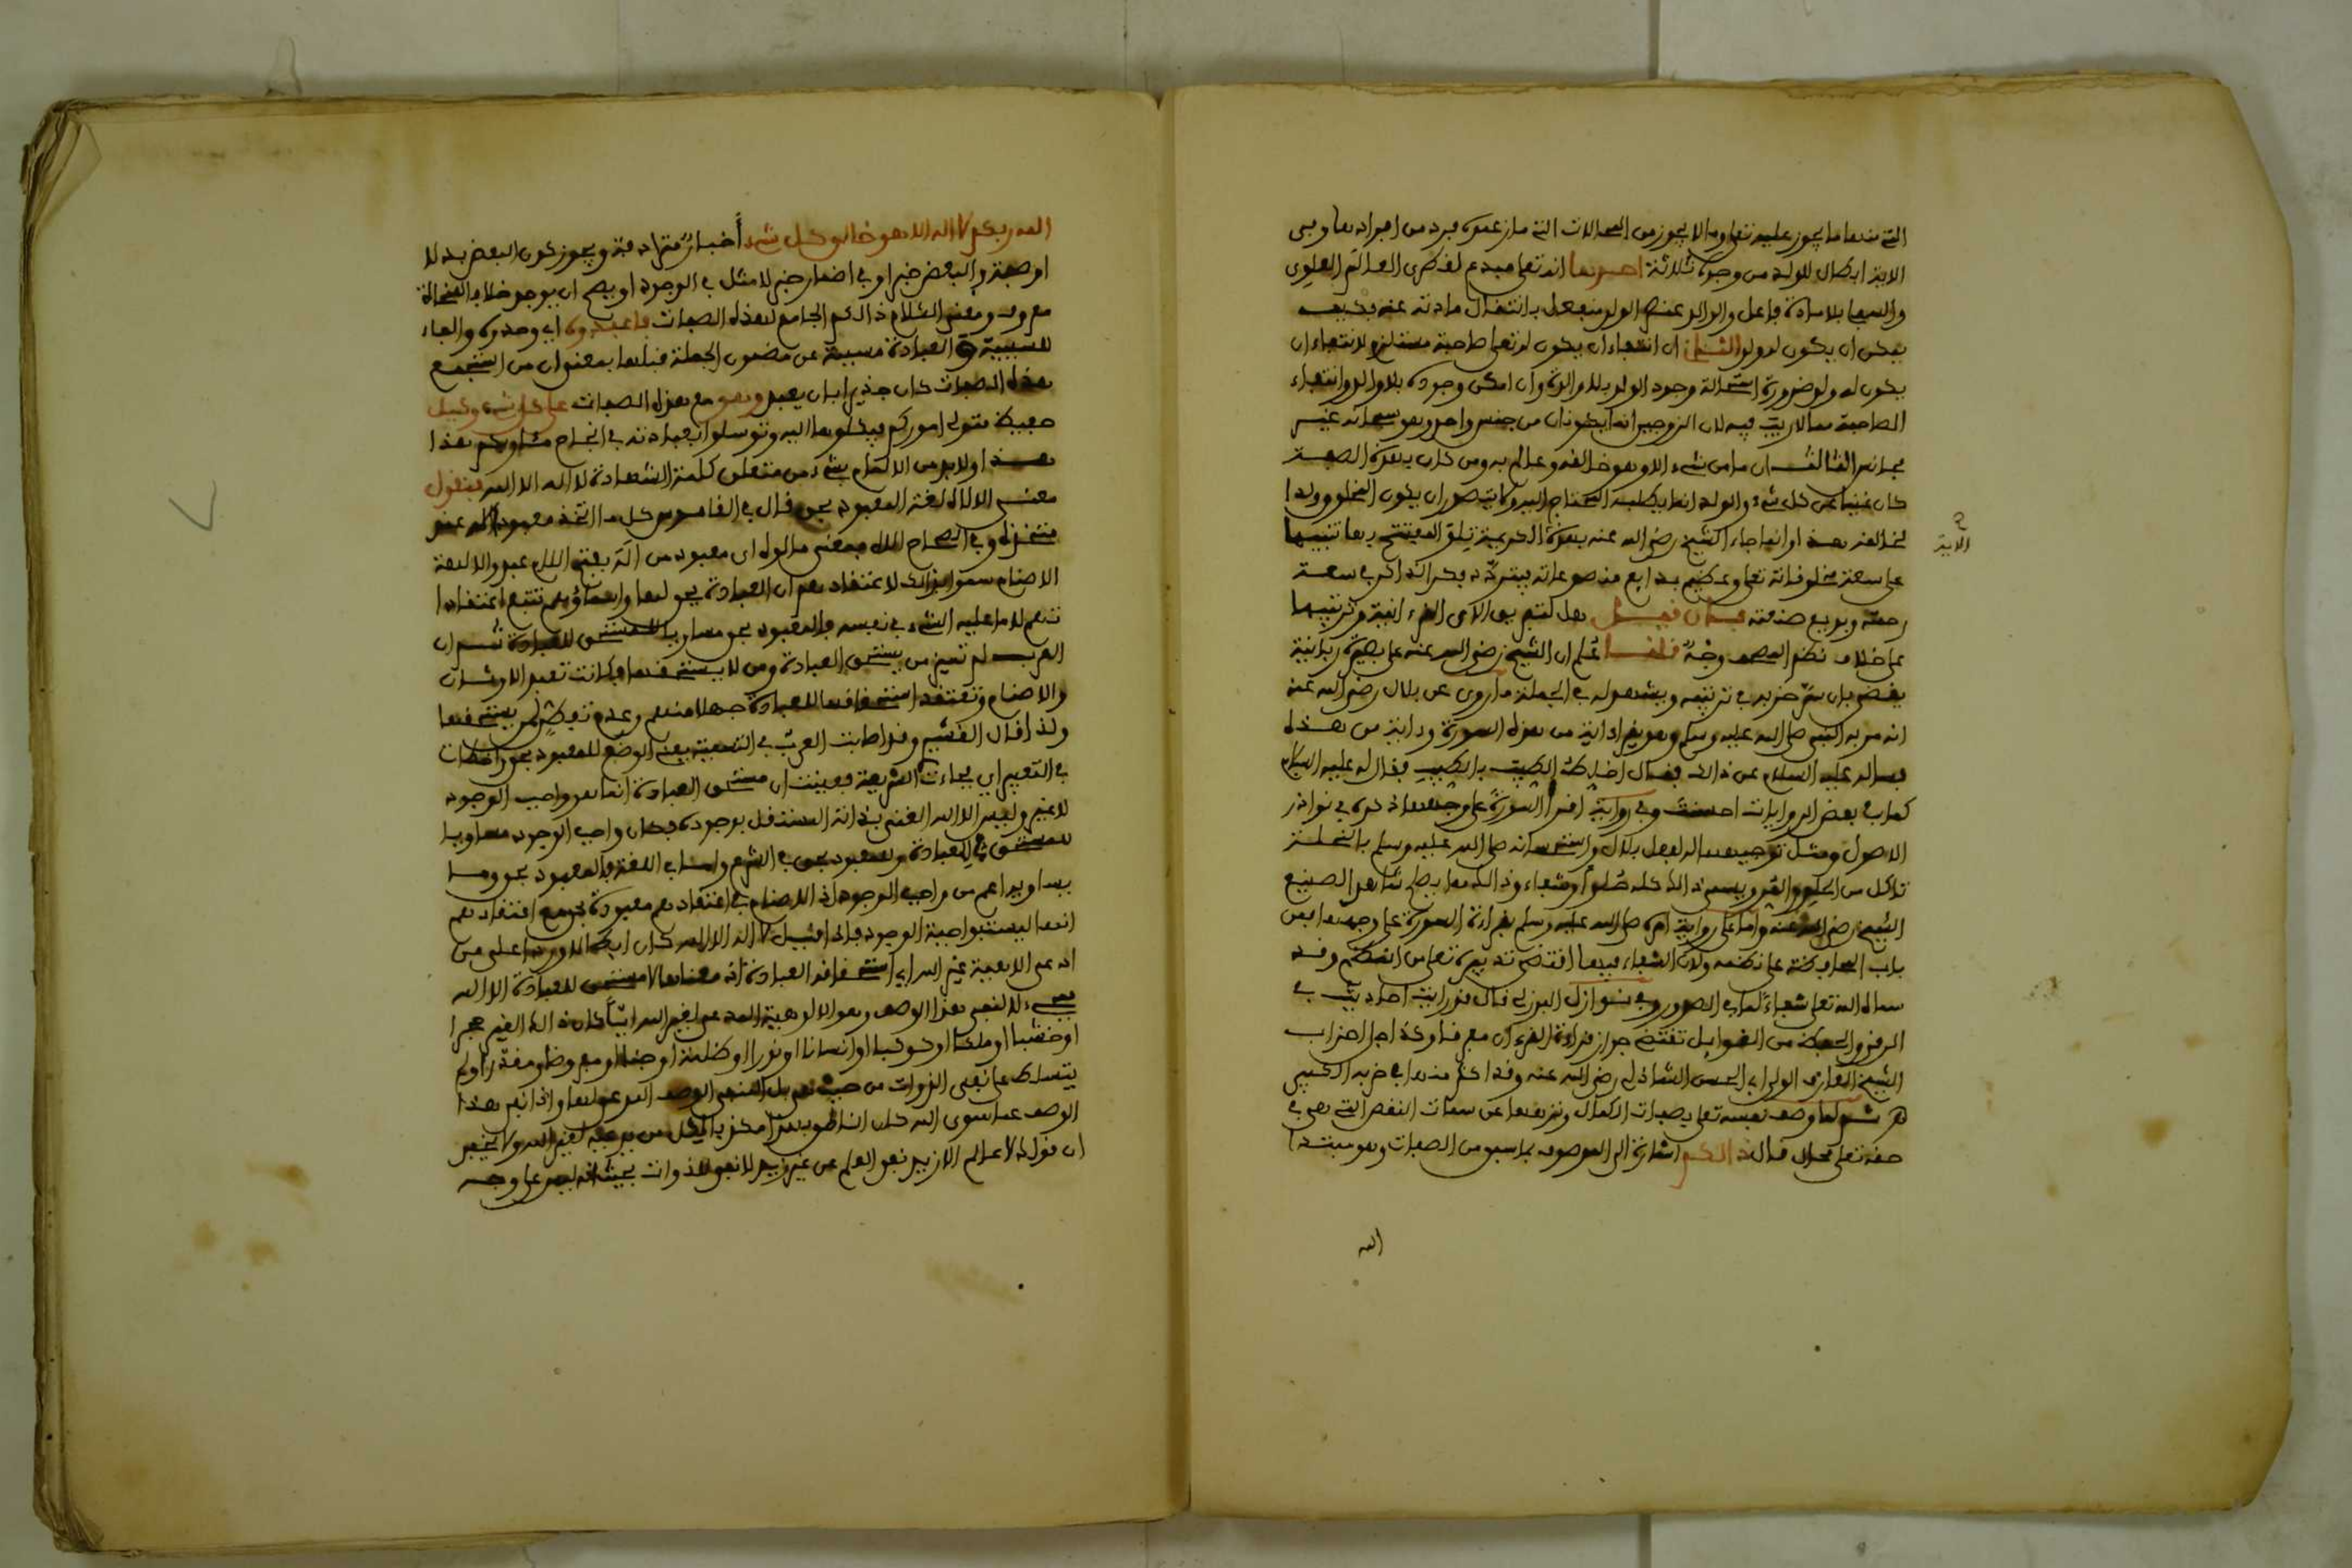 التي منها ما يجوز عليه تعلى وما لا يجوز من المحالات التي ما زعموه فرد من افرادها وفي
الاية ابطال للولد من وجوه ثلاثة احدها انه تعلى مبدع لفطرى العالم العلوي
والسفلي بلا مادة فاعل والوالد عنصر الولد منفعل بانتقال مادته عنه فكيف
يمكن ان يكون له ولد الثاني ان انتفاء ان يكون له تعلى صاحبة مستلزم لانتفاء ان
يكون له ولد ضرورة استحالة وجود الولد بلا والدة وان امكن وجوده بلا والد وانتفاء
الصاحبة مما لا ريب فيه لان الزوجين انما يكونان من جنس واحد وهو سبحانه غير
مجانس الثالث ان ما من شيء الا وهو خالقه وعالم به ومن كان بهذه الصفة
كان غنيا عن كل شيء والولد انما يطلبه المحتاج اليه ولا يتصور ان يكون المخلوق ولدا
لخالقه هذا وانما جاء الشيخ رضي الله عنه بهذه الكريمة تلو المفتتح بها تنبيها
الاية
على سعة مخلوقاته تعلى وعظيم بدايع مصنوعاته فيتردد فكر الذاكر في سعة
رحمته وبديع صنعته فان فيل هل لتقديم الاى القرءانية وترتيبها
على خلاف نظم المصحف وجه قلنا اعلم ان الشيخ رضي الله عنه على بصيرة ربانية
يفضي بان سر حزبه في ترتيبه ويشهد له في الجملة ما روي عن بلال رضي الله عنه
انه مر به النبي صلى الله عليه وسلم وهو يقرا اية من هذه السورة واية من هذه
فساله عليه السلام عن ذالك فقال اخلط الطيب بالطيب فقال له عليه السلام
كما في بعض الروايات احسنت وفي رواية اقرا السورة على وجهها ذكره في نوادر
الاصول ومثل توجيهه الفعل بلال واستحسانه صلى الله عليه وسلم بالنحلة
تاكل من الحلو والمر ويصير ذالك كله حلوا وشفاء وذالك مما يصلح شاهدا لصنيع
الشيخ رضي الله عنه واما على رواية امره صلى الله عليه وسلم بقراءة السورة على وجهها فمن
باب المحافظة على نظمه ولان الشفاء فيها اقتضى تدبيره تعلى من الحكم وقد
سماه الله تعلى شفاء لما في الصدور وفي نوازل البرزلي قال قد رايت احاديث في
الرقى والحفظ من الغوايل تقتضي جواز قراءة القرءان مفرقا وكذا احزاب
الشيخ العارف الولي ابي الحسن الشاذلي رضي الله عنه وقد اكثر منها في حزبه الكبير
ثم لما وصف نفسه تعلى بصفات الكمال ونزهها عن سمات النقص التي هي في
حقه تعلى محال قال ذالكم اشارة الى الموصوف بما سبق من الصفات وهو مبتدا
الله
الله ربكم لا اله الا هو خالق كل شيء أخبار مترادفة ويجوز كون البعض بدلا
او صفة والبعض خبرا وفي اضمار خبر لا مثل في الوجود او يصح ان يوجد خلاف النحاة
معروف ومعنى الكلام ذالكم الجامع لهذه الصفات فاعبدوه اي وحدوه والفاء
للسببية والعبادة مسببة عن مضمون الجملة قبلها بمعنى ان من استجمع
هذه الصفات كان جديرا بان يعبد وهو مع هذه الصفات على كل شيء وكيل
حفيظ متولى اموركم فكلوها اليه وتوسلوا بعبادته في انجاح مطلوبكم هذا
هذا ولا بد من الالمام بشيء من متعلق كلمة الشهادة لا اله الا الله فنقول
معنى الاله لغة المعبود بحق قال في القاموس كل ما اتخذ معبودا اله عند
متخذه وفي الصحاح اله بمعنى مالوه اى معبود من اله بفتح اللام عبد والالهة
الاصنام سموا بذالك لاعتقادهم ان العبادة يحق لها واسماؤهم تتبع اعتقادا
تهم لا ما عليه الشيء في نفسه فالمعبود بحق مساو بالمستحق للعبادة ثم ان
العرب لم تميز من يستحق العبادة ومن لا يستحقها فكانت تعبد الاوثان
والاصنام وتعتقد استحقاقها للعبادة جهلا منهم وعدم تفطن لمن يستحقها
ولذا قال القشيري وقد اصابت العرب في التسمية يعني الوضع للمعبود بحق واخطات
في التعبير اي فجاءت الشريعة فعينت ان مستحق العبادة انما هو واجب الوجود
لا غير وليس الا الله الغني بذاته المستقل بوجوده فكان واجب الوجود مساويا
للمستحق للعبادة وللمعبود بحق في الشرع واما في اللغة فالمعبود بحق وما
يساويه اعم من واجب الوجود اذ الاصنام في اعتقادهم معبودة بحق مع اعتقادهم
انها ليست واجبة الوجود فاذا قيل لا اله الا الله كان ابطالا وردا على من
ادعى الالهية لغير الله اي استحقاقه العبادة اذ معناها لا مستحق للعبادة الا الله
فهي لا لنفى هذا الوصف وهو الالوهية المدعى لغير الله ايا كان ذالك الغير حجرا
او خشبا او ملكا او كوكبا او انسانا او نورا او ظلمة او ولم
يتسلط على نفى الذوات من حيث هي بل الوصف المدعى لها واذا نفي هذا
الوصف عما سوى الله كان الناطق بهذا مكذبا لكل من يدعيه لغير الله ولا يخفى
ان قولك لا عالم الا زيد نفي العلم عن غير زيد لا نفي للذوات على وجه